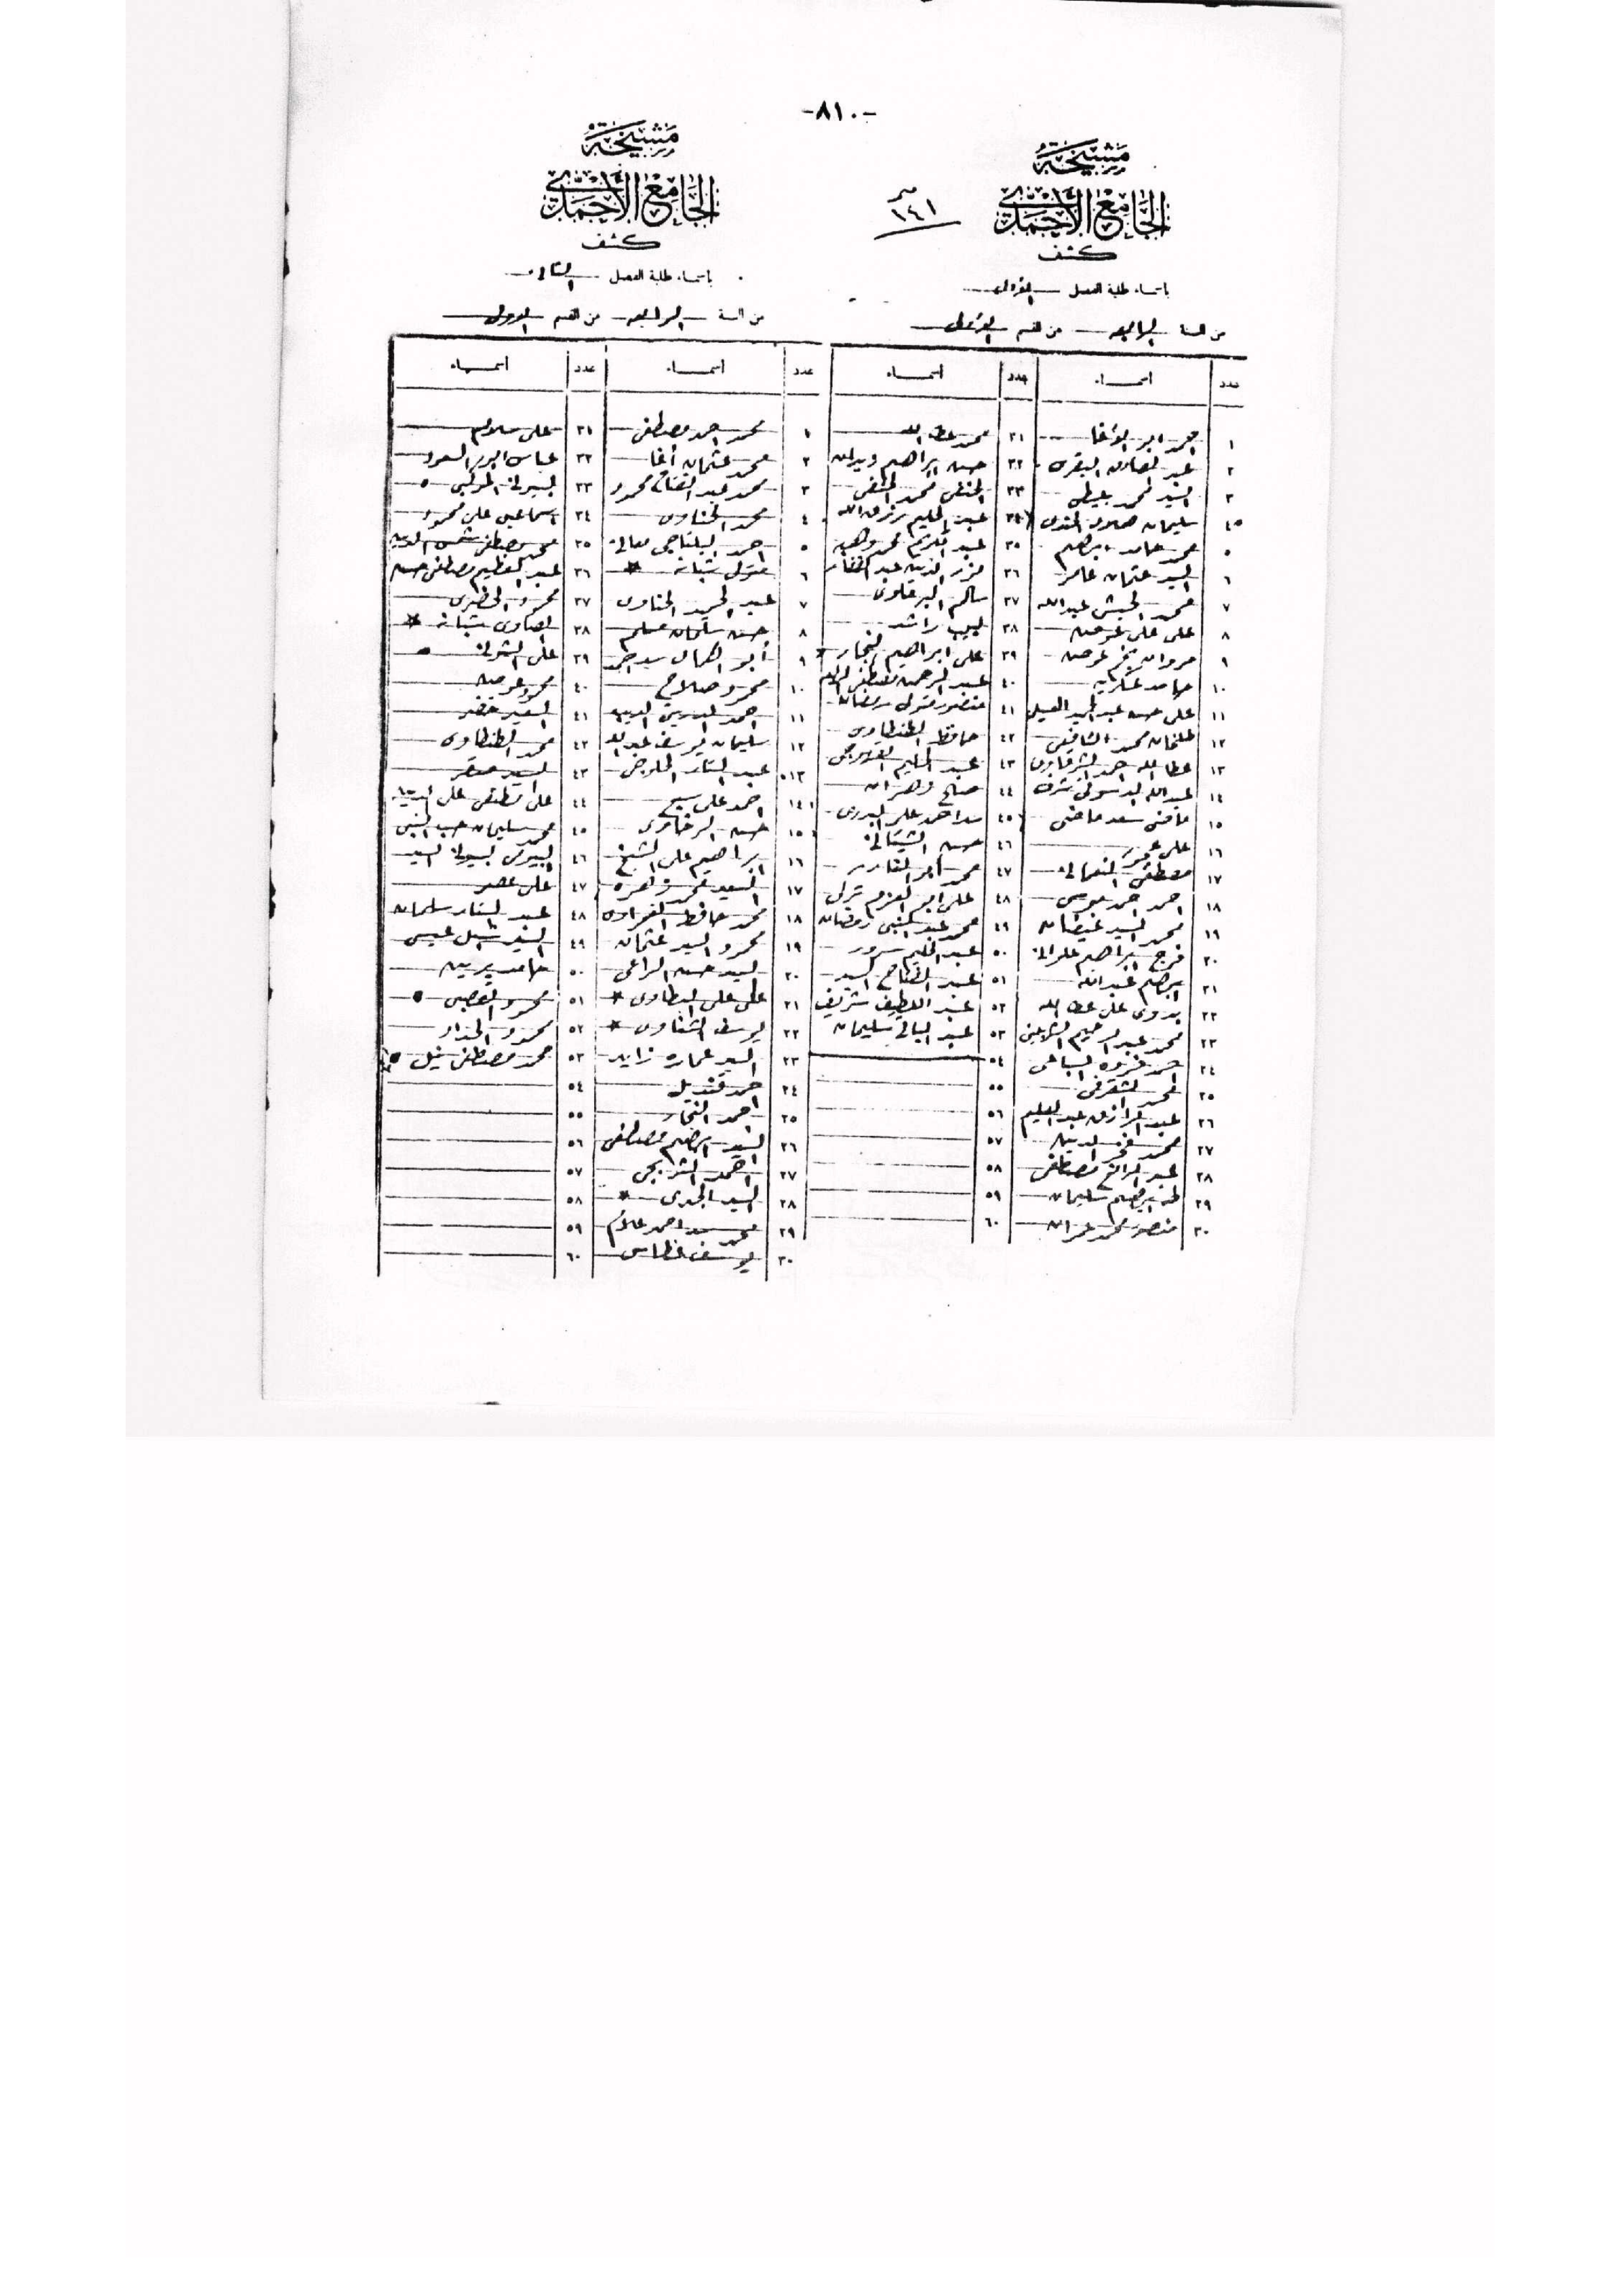 -٨١٠-
مشيخة
الجامع الأحمدى
كشف
باسماء طلبة الفصل الاول
من السنة الرابعه من القسم الاولى
١٤١
عدد اسماء عدد اسماء
١ محمد ابو الوفا ٣١ محمد عطا الله
٢ عبد الصادق البقرى ٣٢ حسن ابراهيم ويدان
٣ السيد محمد بعيطى ٣٣ الحنفى محمد الحنفى
٤ سليمان حمادى الجندى ٣٤ عبد الحليم رزق الله
٥ محمد حامد ابراهيم ٣٥ عبد الكريم محمد وهبه
٦ السيد عثمان عامر ٣٦ عبد الغفار
٧ محمد الحبشى عبد الله ٣٧ سالم البرعاوى
٨ على على عوض ٣٨ لبيب راشد
٩ مروان نجم عوض ٣٩ على ابراهيم النجار
١٠ حامد عسكريه ٤٠ عبد الرحمن مصطفى
١١ على حسن عبد المجيد ٤١ منصور متولى رمضان
١٢ محمد الشافعى ٤٢ حافظ الطنطاوى
١٣ عطا الله احمد الشرقاوى ٤٣ عبد السليم
١٤ عبد الله الدسوقى شرف ٤٤ صالح وهدان
١٥ ماضى سعد ماضى ٤٥ على البدرى
١٦ على عمر ٤٦ حسن الشيتانى
١٧ مصطفى النعمانى ٤٧ محمد
١٨ احمد احمد موسى ٤٨ على ابو العزم تركى
١٩ محمد السيد غيضان ٤٩ محمد عبد النبى رمضان
٢٠ فرج ابراهيم ٥٠ عبد الحليم سرور
٢١ ابراهيم عبد الله ٥١ عبد الفتاح السيد
٢٢ بدوى على عطا الله ٥٢ عبد اللطيف شريف
٢٣ محمد عبد الرحيم ٥٣ عبد الباقى سليمان
٢٤ احمد السباعى ٥٤
٢٥ محمد الشقرفى ٥٥
٢٦ عبد الرازق عبد العليم ٥٦
٢٧ محمد فخر الدين ٥٧
٢٨ عبد الرافع مصطفى ٥٨
٢٩ طه ابراهيم سليمان ٥٩
٣٠ منصور محمد عمران ٦٠
مشيخة
الجامع الأحمدى
كشف
باسماء طلبة الفصل الثانى
من السنة الرابعه من القسم الاولى
عدد اسماء عدد اسماء
١ محمد احمد مصطفى ٣١ على سلام
٢ محمد عثمان أغا ٣٢ عباس ابو السعود
٣ محمد عبد الفتاح محمود ٣٣ بسيونى
٤ محمد الحناوى ٣٤ اسماعيل على محمود
٥ احمد البلتاجى معالى ٣٥ محمد مصطفى شمس الدين
٦ متولى شبانه ٣٦ عبد العظيم مصطفى حسن
٧ عبد الحميد الحناوى ٣٧ محمود الخضرى
٨ حسن سليمان مسلم ٣٨ الصاوى شبانه
٩ أبو الكمال سيد احمد ٣٩ على الشونى
١٠ محمود صلاح ٤٠ محمود عوض
١١ احمد بدر الدين ٤١ السعيد خضر
١٢ سليمان يوسف عبد الله ٤٢ محمد الطنطاوى
١٣ عبد الستار الحلوجى ٤٣ السيد صقر
١٤ احمد على سبع ٤٤ على مصطفى على
١٥ حسن البرغاوى ٤٥ محمد سليمان حبيب النبى
١٦ ابراهيم على الشيخ ٤٦ البيومى بسيونى السيد
١٧ السعيد محمد زهره ٤٧ على عصر
١٨ محمد حافظ ٤٨ عبد الستار سليمان
١٩ محمود السيد عثمان ٤٩ السيد شبل عيسى
٢٠ السيد حسن الراعى ٥٠ حامد بربين
٢١ على على البطاوى ٥١ محمود القصبى
٢٢ يوسف الشناوى ٥٢ محمود الحداد
٢٣ السيد عماره زايد ٥٣ محمد مصطفى نيل
٢٤ احمد قنديل ٥٤
٢٥ احمد النجار ٥٥
٢٦ السيد ابراهيم مصطفى ٥٦
٢٧ احمد الشربجى ٥٧
٢٨ السيد الجدى ٥٨
٢٩ محمد سيد احمد علام ٥٩
٣٠ يوسف غطاس ٦٠